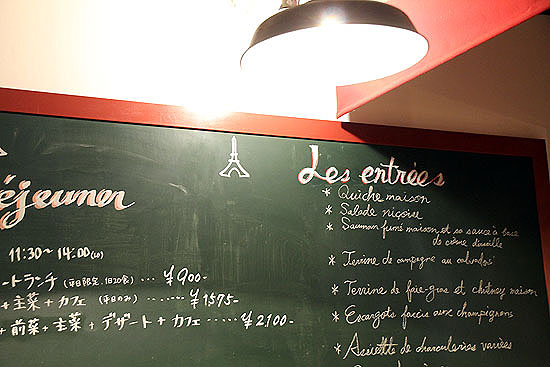 éjeuner
11:30~14:00(LO)
ートランチ (平日限定、1日20食) ····· ¥900-
+主菜+カフェ (平日のみ) ··· ¥1575-
+前菜+主菜+デザート+カフェ ····· ¥2100-
Les entrées
* Quiche maison
* Salade niçoise
* Sauman fumé maison et sa sauce à base
de crème
* Terrine de campagne au calvados
* Terrine de foie-gras et chutney maison
* Escargots farcis aux champignons
* Assiette de charcuteries variées